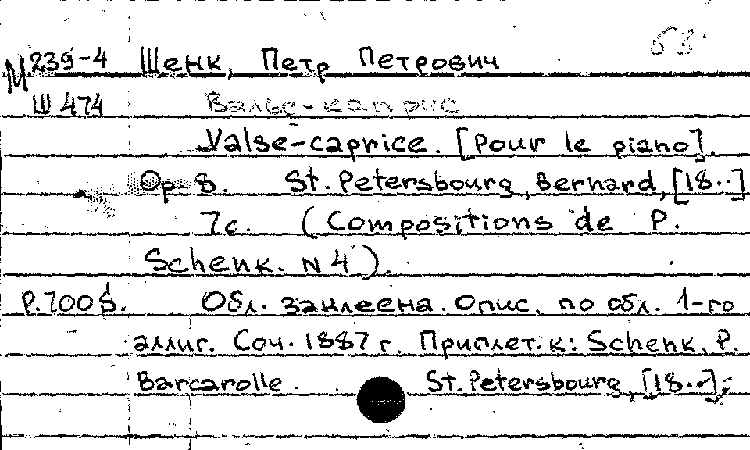 63
М 239-4 Шенк, Петр Петрович
Ш 474 Вальс-каприс
Valse-caprice. [Pour le piano].
Op. 8. St. Petersbourg, Bernard, [18..]
7с. (Compositions de P.
Schenk. N 4).
Обл. заклеена. Опис. по обл. 1-го
аллиг. Соч. 1887 г. Приплет. к: Schenk, P.
Barcarolle. St. Petersbourg, [18..];